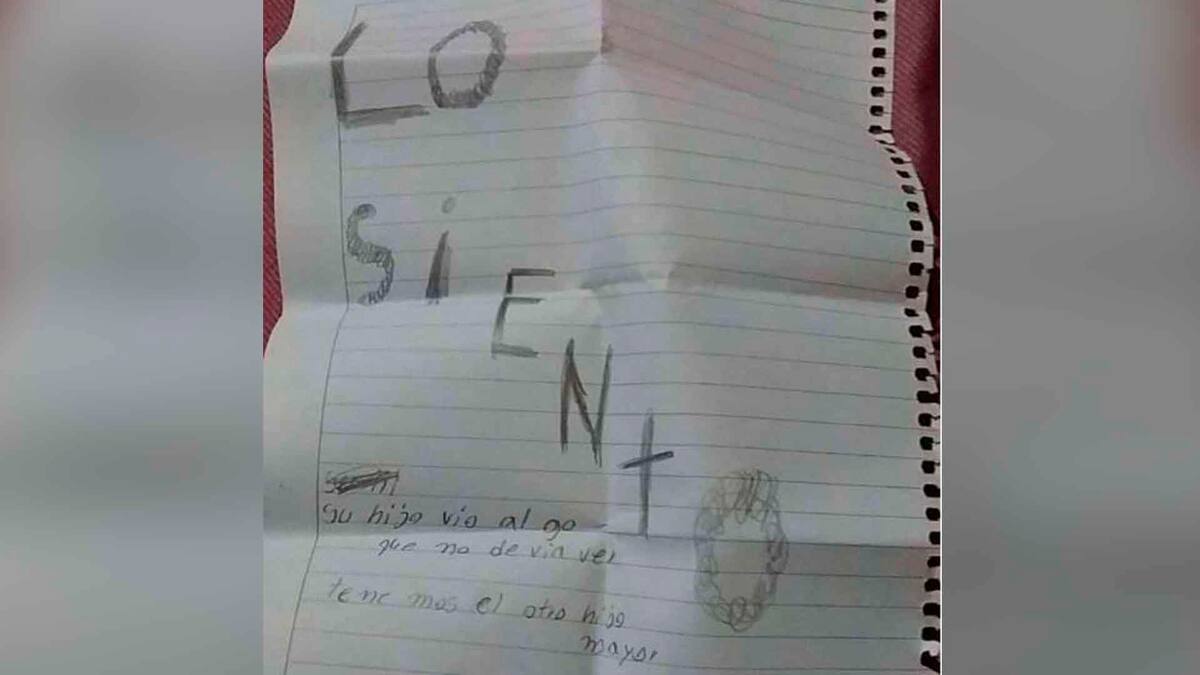 LO
SiENtO
Su hijo vio al go
que no de via ver
tene mos el otro hijo
mayor